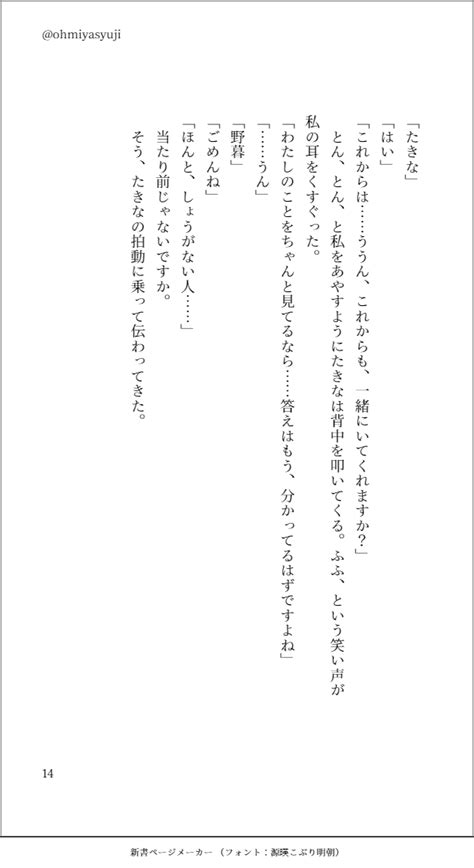 @ohmiyasyuji
「たきな」
「はい」
「これからは……ううん、これからも、一緒にいてくれますか？」
とん、とん、と私をあやすようにたきなは背中を叩いてくる。ふふ、という笑い声が
私の耳をくすぐった。
「わたしのことをちゃんと見てるなら……答えはもう、分かってるはずですよね」
「……うん」
「野暮」
「ごめんね」
「ほんと、しょうがない人……」
当たり前じゃないですか。
そう、たきなの拍動に乗って伝わってきた。
14
新書ページメーカー（フォント：源暎こぶり明朝）